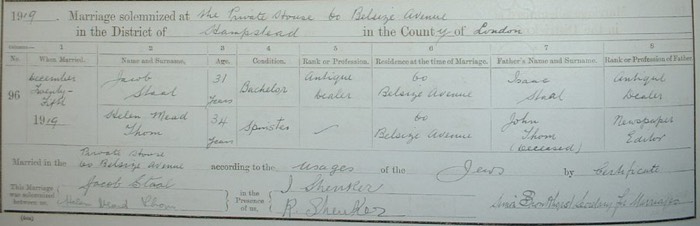 1919 Marriage solemnized at the Private House 60 Belsize Avenue
in the District of Hampstead in the County of London
1 2 3 4 5 6 7 8
No. When Married. Name and Surname. Age. Condition. Rank or Profession. Residence at the time of Marriage. Father's Name and Surname. Rank or Profession of Father
96 December Twenty- 1919 Jacob Staal 31 Years Bachelor Antique Dealer 60 Belsize Avenue Isaac Staal Antique Dealer
Helen Mead Thom 34 Years Spinster 60 Belsize Avenue John Thom (deceased) Newspaper Editor
Married in the Private House 60 Belsize Avenue according to the usages of the Jews by Certificate
This Marriage was solemnized between us, Jacob Staal Helen Mead Thom in the Presence of us, J Shenker R Shenker Secretary for Marriages